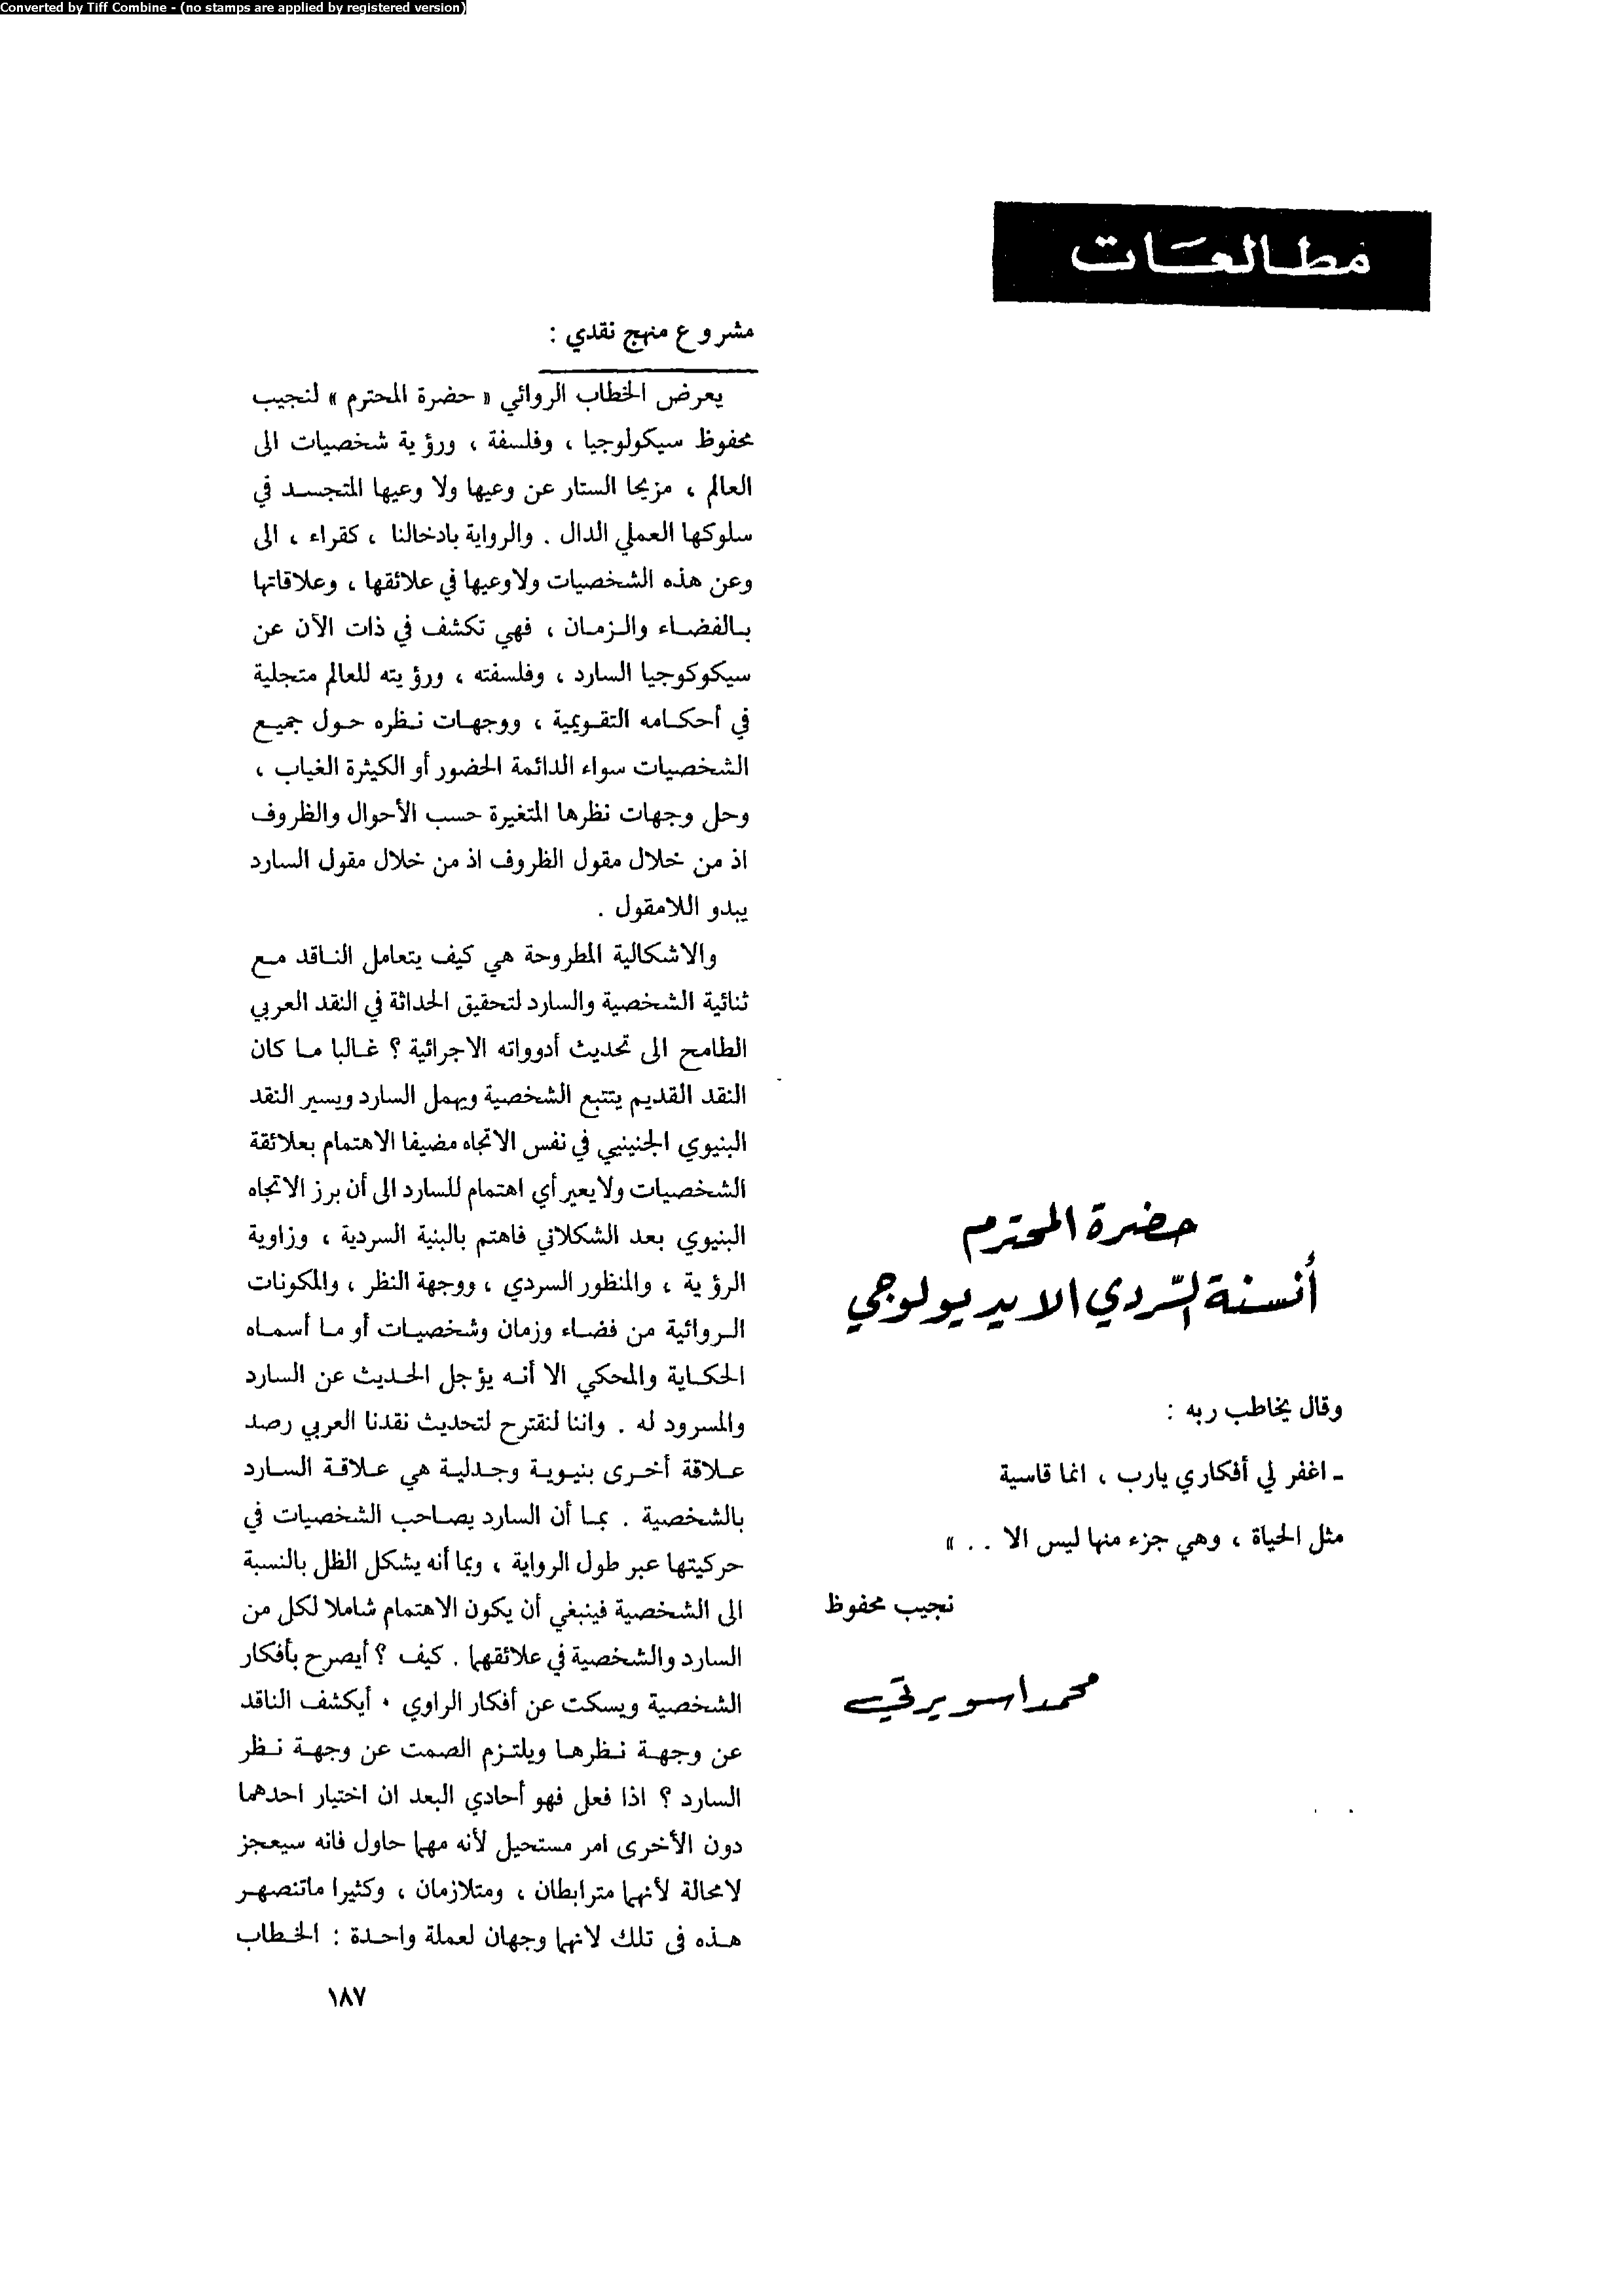 Converted by Tiff Combine - (no stamps are applied by registered version)
مطالعات
حضرة المحترم
أنسنة السّردي الايديولوجي
وقال يخاطب ربه :
ـ اغفر لي أفكاري يارب ، انما قاسية
مثل الحياة ، وهي جزء منها ليس الا . . »
نجيب محفوظ
محمد اسويرتي
مشروع منهج نقدي :
يعرض الخطاب الروائي « حضرة المحترم » لنجيب
محفوظ سيكولوجيا ، وفلسفة ، ورؤية شخصيات الى
العالم ، مزيحا الستار عن وعيها ولا وعيها المتجسد في
سلوكها العملي الدال . والرواية بادخالنا ، كقراء ، الى
وعن هذه الشخصيات ولاوعيها في علائقها ، وعلاقاتها
بالفضاء والزمان ، فهي تكشف في ذات الآن عن
سيكوكوجيا السارد ، وفلسفته ، ورؤيته للعالم متجلية
في أحكامه التقويمية ، ووجهات نظره حول جميع
الشخصيات سواء الدائمة الحضور أو الكيثرة الغياب ،
وحل وجهات نظرها المتغيرة حسب الأحوال والظروف
اذ من خلال مقول الظروف اذ من خلال مقول السارد
يبدو اللامقول .
والاشكالية المطروحة هي كيف يتعامل الناقد مع
ثنائية الشخصية والسارد لتحقيق الحداثة في النقد العربي
الطامح الى تحديث أدوواته الاجرائية ؟ غالبا ما كان
النقد القديم يتتبع الشخصية ويهمل السارد ويسير النقد
البنيوي الجنينيي في نفس الاتجاه مضيفا الاهتمام بعلائقة
الشخصيات ولايعير أي اهتمام للسارد الى أن برز الاتجاه
البنيوي بعد الشكلاني فاهتم بالبنية السردية ، وزاوية
الرؤية ، والمنظور السردي ، ووجهة النظر ، والمكونات
الروائية من فضاء وزمان وشخصيات أو ما أسماه
الحكاية والمحكي الا أنه يؤجل الحديث عن السارد
والمسرود له . واننا لنقترح لتحديث نقدنا العربي رصد
علاقة أخرى بنيوية وجدلية هي علاقة السارد
بالشخصية . بما أن السارد يصاحب الشخصيات في
حركيتها عبر طول الرواية ، وبما أنه يشكل الظل بالنسبة
الى الشخصية فينبغي أن يكون الاهتمام شاملا لكل من
السارد والشخصية في علائقهما . كيف ؟ أيصرح بأفكار
الشخصية ويسكت عن أفكار الراوي . أيكشف الناقد
عن وجهة نظرها ويلتزم الصمت عن وجهة نظر
السارد ؟ اذا فعل فهو أحادي البعد ان اختيار احدهما
دون الأخرى امر مستحيل لأنه مهما حاول فانه سيعجز
لامحالة لأنهما مترابطان ، ومتلازمان ، وكثيرا ماتنصهر
هذه في تلك لانهما وجهان لعملة واحدة : الخطاب
١٨٧